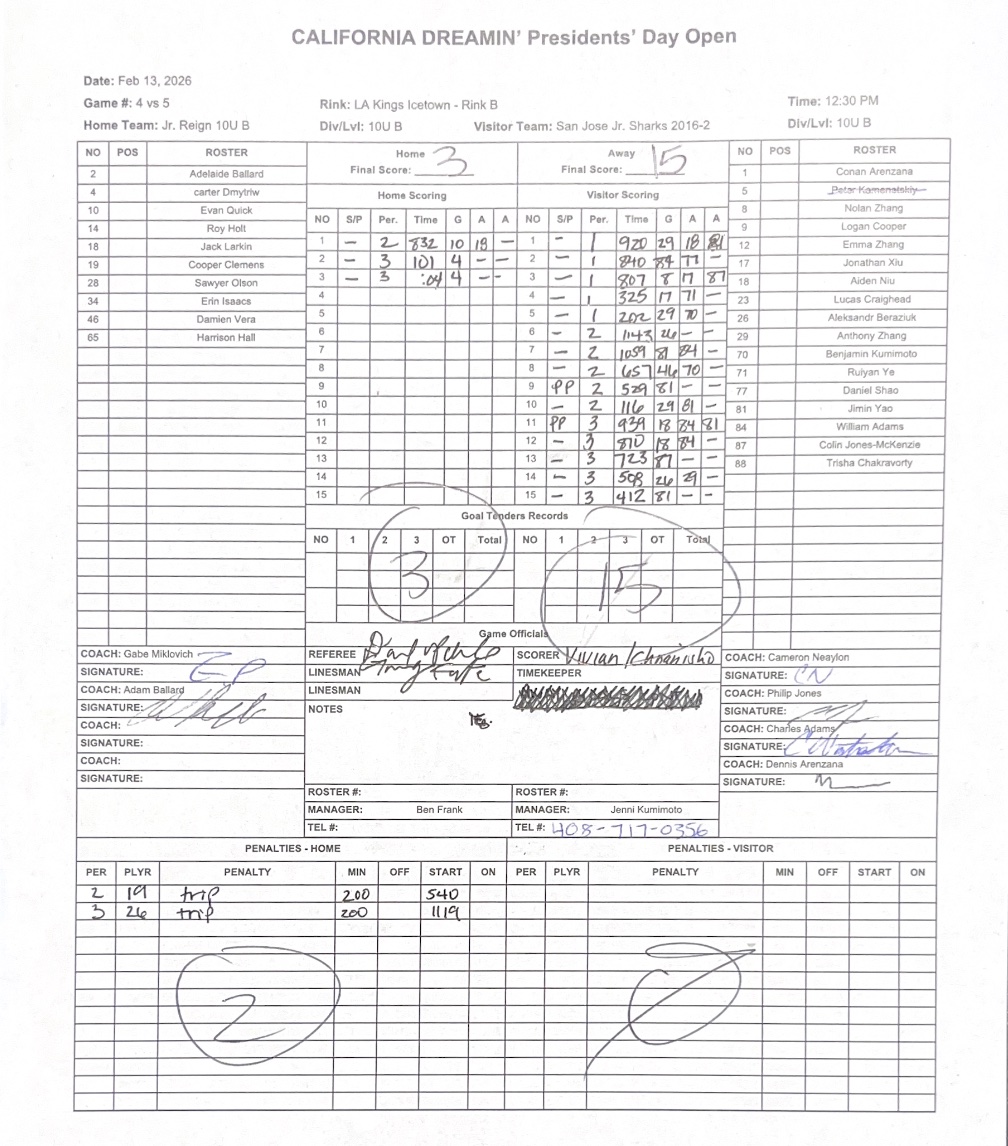 CALIFORNIA DREAMIN' Presidents' Day Open
Date: Feb 13, 2026
Game #: 4 vs 5 Rink: LA Kings Icetown - Rink B Time: 12:30 PM
Home Team: Jr. Reign 10U B Div/Lvl: 10U B Visitor Team: San Jose Jr. Sharks 2016-2 Div/Lvl: 10U B
NO POS ROSTER
2 Adelaide Ballard
4 carter Dmytriw
10 Evan Quick
14 Roy Holt
18 Jack Larkin
19 Cooper Clemens
28 Sawyer Olson
34 Erin Isaacs
46 Damien Vera
65 Harrison Hall
Home
Final Score: 3
Home Scoring
NO S/P Per. Time G A A
1 — 2 832 10 18 —
2 — 3 101 4 — —
3 — 3 :04 4 — —
4
5
6
7
8
9
10
11
12
13
14
15
Away
Final Score: 15
Visitor Scoring
NO S/P Per. Time G A A
1 — 1 920 29 18 81
2 — 1 840 84 77 —
3 — 1 807 8 17 87
4 — 1 325 17 71 —
5 — 1 202 29 70 —
6 — 2 1143 26 — —
7 — 2 1059 81 84 —
8 — 2 657 46 70 —
9 PP 2 529 81 — —
10 — 2 116 29 81 —
11 PP 3 939 18 84 81
12 — 3 810 18 84 —
13 — 3 723 87 — —
14 — 3 508 26 29 —
15 — 3 412 81 — —
NO POS ROSTER
1 Conan Arenzana
5 Petar Kamenetskiy
8 Nolan Zhang
9 Logan Cooper
12 Emma Zhang
17 Jonathan Xiu
18 Aiden Niu
23 Lucas Craighead
26 Aleksandr Beraziuk
29 Anthony Zhang
70 Benjamin Kumimoto
71 Ruiyan Ye
77 Daniel Shao
81 Jimin Yao
84 William Adams
87 Colin Jones-McKenzie
88 Trisha Chakravorty
Goal Tenders Records
NO 1 2 3 OT Total NO 1 2 3 OT Total
3 15
Game Officials
COACH: Gabe Miklovich
SIGNATURE:
COACH: Adam Ballard
SIGNATURE:
COACH:
SIGNATURE:
COACH:
SIGNATURE:
REFEREE
LINESMAN
LINESMAN
NOTES
SCORER Vivian
TIMEKEEPER
COACH: Cameron Neaylon
SIGNATURE: CN
COACH: Philip Jones
SIGNATURE:
COACH: Charles Adams
SIGNATURE:
COACH: Dennis Arenzana
SIGNATURE:
ROSTER #: ROSTER #:
MANAGER: Ben Frank MANAGER: Jenni Kumimoto
TEL #: TEL #: 408-717-0356
PENALTIES - HOME PENALTIES - VISITOR
PER PLYR PENALTY MIN OFF START ON PER PLYR PENALTY MIN OFF START ON
2 19 trip 200 540
3 26 trip 200 1119
2